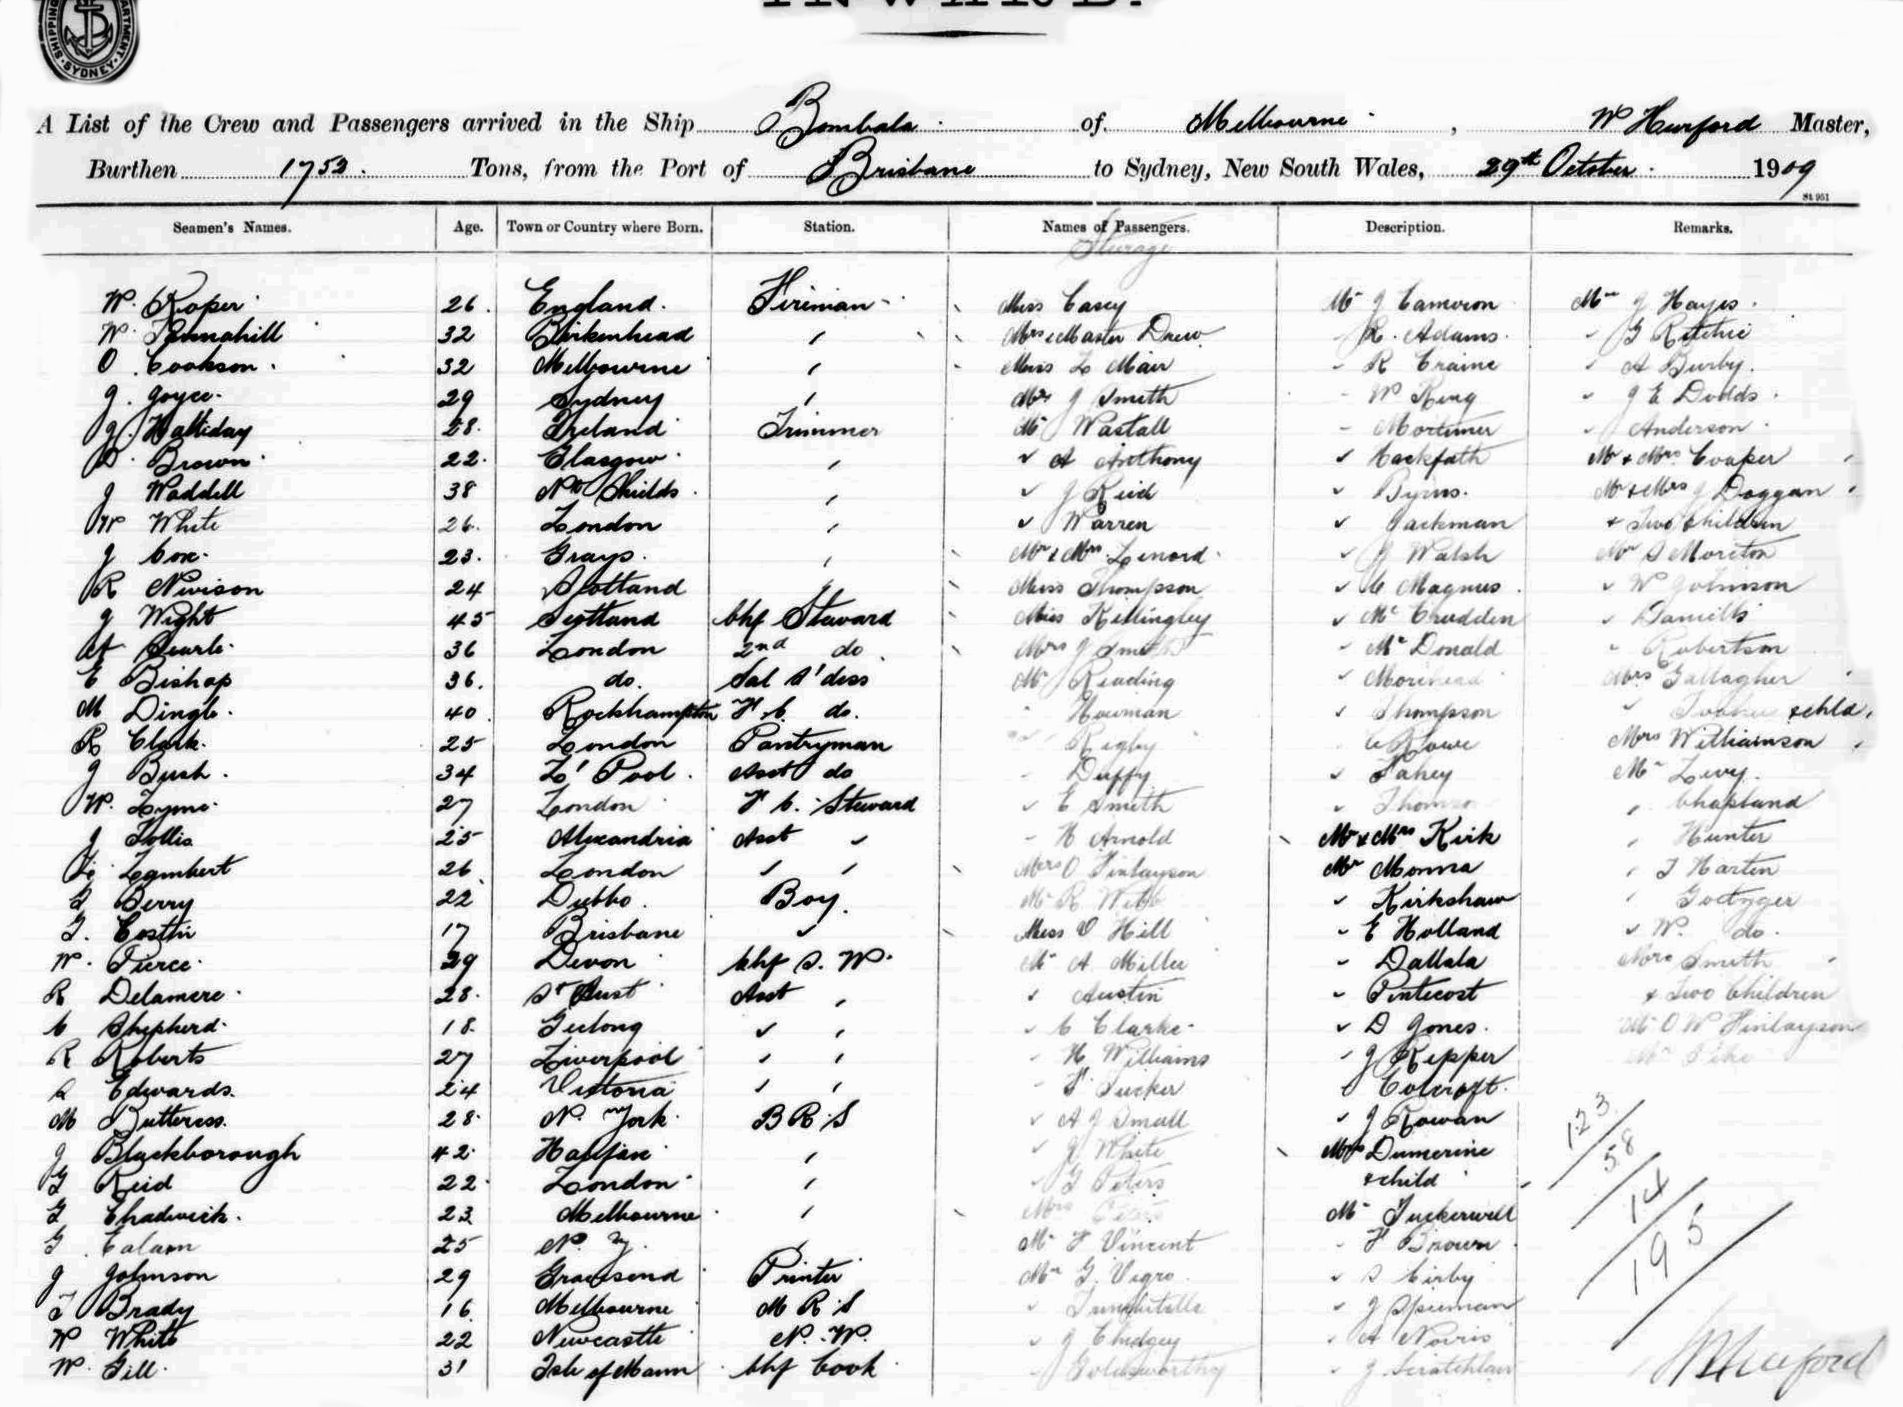 INWARD.
SHIPPING DEPARTMENT SYDNEY
A List of the Crew and Passengers arrived in the Ship Bombala of Melbourne, W Hurford Master,
Burthen 1753 Tons, from the Port of Brisbane to Sydney, New South Wales, 29th October 1909
Seamen's Names. Age. Town or Country where Born. Station. Names of Passengers. Description. Remarks.
Steerage
W. Roper 26 England Fireman Miss Casey Mr J Cameron Mr J Hayes
W. Tannahill 32 Birkenhead " Mrs & Master Drew " R. Adams " G Ritchie
O. Cookson 32 Melbourne " Miss L Mair " R Craine " A Burby
J. Joyce 29 Sydney " Mrs J Smith " W King " J E Dodds
J. Halliday 28 Ireland Trimmer Mr Wastall " Mortimer " Anderson
D. Brown 22 Glasgow " " A Anthony " Mr & Mrs Cooper
J Waddell 38 Nth Shields " " J Reid " Byrns Mr & Mrs J Doggan
W White 26 London " " Warren " Jackman & Two Children
J Cox 23 Grays " Mr & Mrs Lenord " J Walsh Mr S Moreton
R Newison 24 Scotland Miss Thompson " C Magnus " W Johnson
J Wight 45 Scotland Chf Steward Miss Killingley " McCrudden " Daniells
Af Searle 36 London 2nd do Mrs J Smith " McDonald " Robertson
E Bishop 36 do. Sal S'dess Mr Reading " Morehead Mrs Gallagher
M Dingle 40 Rockhampton F. C. do. " Newman " Thompson " & chld
R Clark 25 London Pantryman " Rigby " C Rowe Mrs Williamson
J Bush 34 L'Pool Asst do " Duffy " Fahey Mr Levy
W. Lyme 27 London F C. Steward " E Smith " Thomson " Chapland
J Follis 25 Alexandria Asst " " H Arnold Mr & Mrs Kirk " Hunter
L. Lambert 26 London " " Mrs O Finlayson Mr Monna " T Hartin
G Berry 22 Dubbo Boy Mr R Webb " Kirkshaw "
G. Costin 17 Brisbane " Miss V Hill " E Holland " W. do.
W. Pierce 29 Devon Chf S. W. Mr A Miller " Dallala Mrs Smith
R Delamere 28 St Aust Asst " " Austin " Pentecost & Two Children
C Shepherd 18 Geelong " " " C Clarke " D Jones Mr O W Finlayson
R Roberts 27 Liverpool " " " H Williams " J Kepper Mr Pike
S Edwards 24 Victoria " " " F Tucker Colcroft
M Buttress 28 N. York B R S " A J Small " J Rowan
J Blackborough 42 Halifax " " J White Mrs Dumerine
G Reid 22 London " " G Peters & child
G Chadwick 23 Melbourne " Mrs Mr Tuckerwell
G. Ealam 25 N. Z. Mr F Vincent " F Brown
J Johnson 29 Gravesend Printer Mr G. Vigro " S Kirby
T Brady 16 Melbourne M R S " " J Spieman
W White 22 Newcastle N. W. " J Chidgey " A Norris
W. Gill 31 Isle of Mann Chf Cook " Goldsworthy " J
123
58
14
195
W Hurford